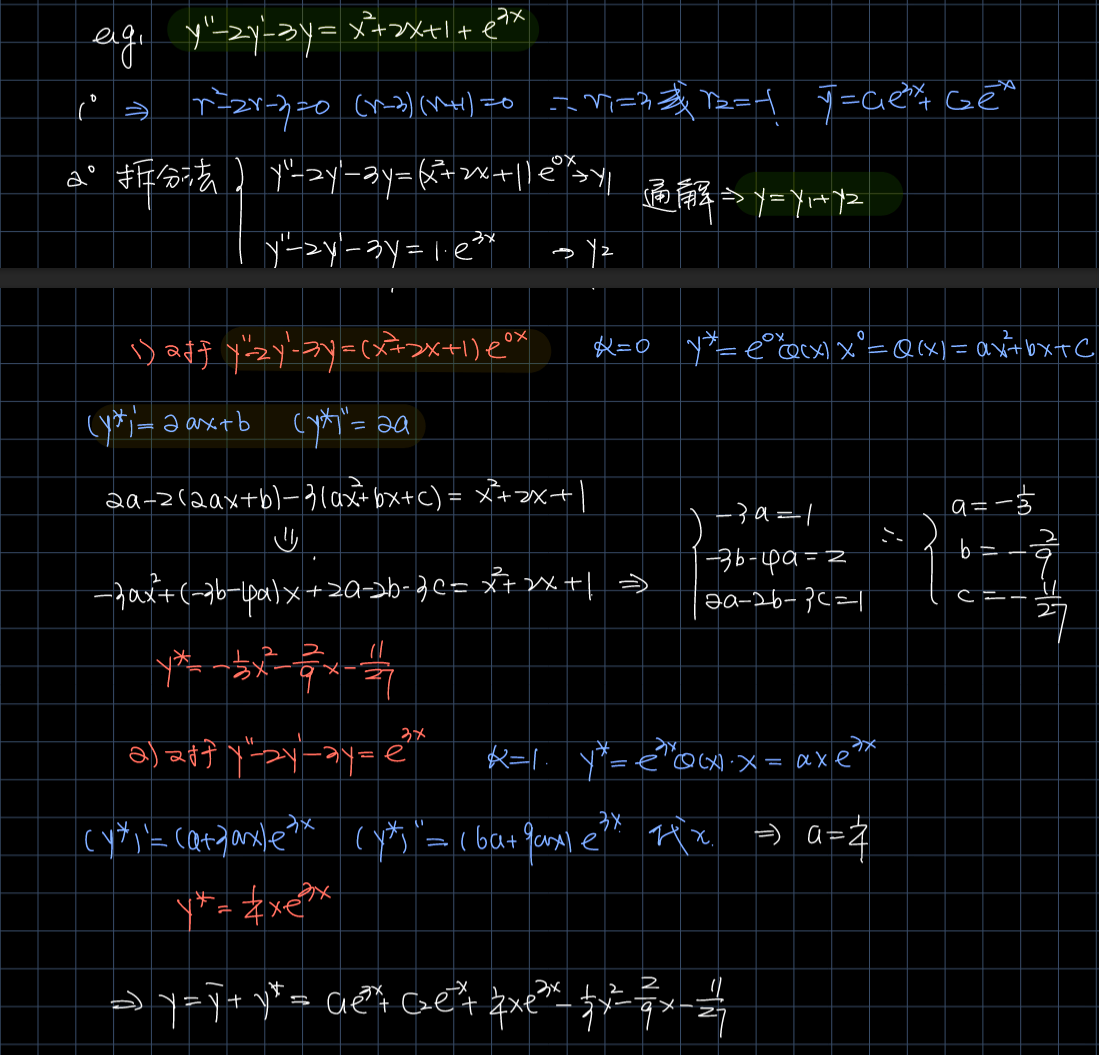 eg. y''-2y'-3y = x²+2x+1+e^{3x}
1° ⇒ r²-2r-3=0 (r-3)(r+1)=0 ∴ r₁=3 或 r₂=-1 ȳ=C₁e^{3x}+C₂e^{-x}
2° 拆分法 { y''-2y'-3y=(x²+2x+1)e^{0x} → y₁
通解 ⇒ y=y₁+y₂
y''-2y'-3y=1·e^{3x} → y₂
1) 对于 y''-2y'-3y=(x²+2x+1)e^{0x} k=0 y*=e^{0x}Q(x)x⁰=Q(x)=ax²+bx+c
(y*)'=2ax+b (y*)''=2a
2a-2(2ax+b)-3(ax²+bx+c)=x²+2x+1
⇓
-3ax²+(-3b-4a)x+2a-2b-3c=x²+2x+1 ⇒ { -3a=1
-3b-4a=2
2a-2b-3c=1
∴ { a=-1/3
b=-2/9
c=-11/27
y*=-1/3x²-2/9x-11/27
2) 对于 y''-2y'-3y=e^{3x} k=1. y*=e^{3x}Q(x)·x=axe^{3x}
(y*)'=(a+3ax)e^{3x} (y*)''=(6a+9ax)e^{3x} 代入 ⇒ a=1/4
y*=1/4xe^{3x}
⇒ y=ȳ+y*=C₁e^{3x}+C₂e^{-x}+1/4xe^{3x}-1/3x²-2/9x-11/27